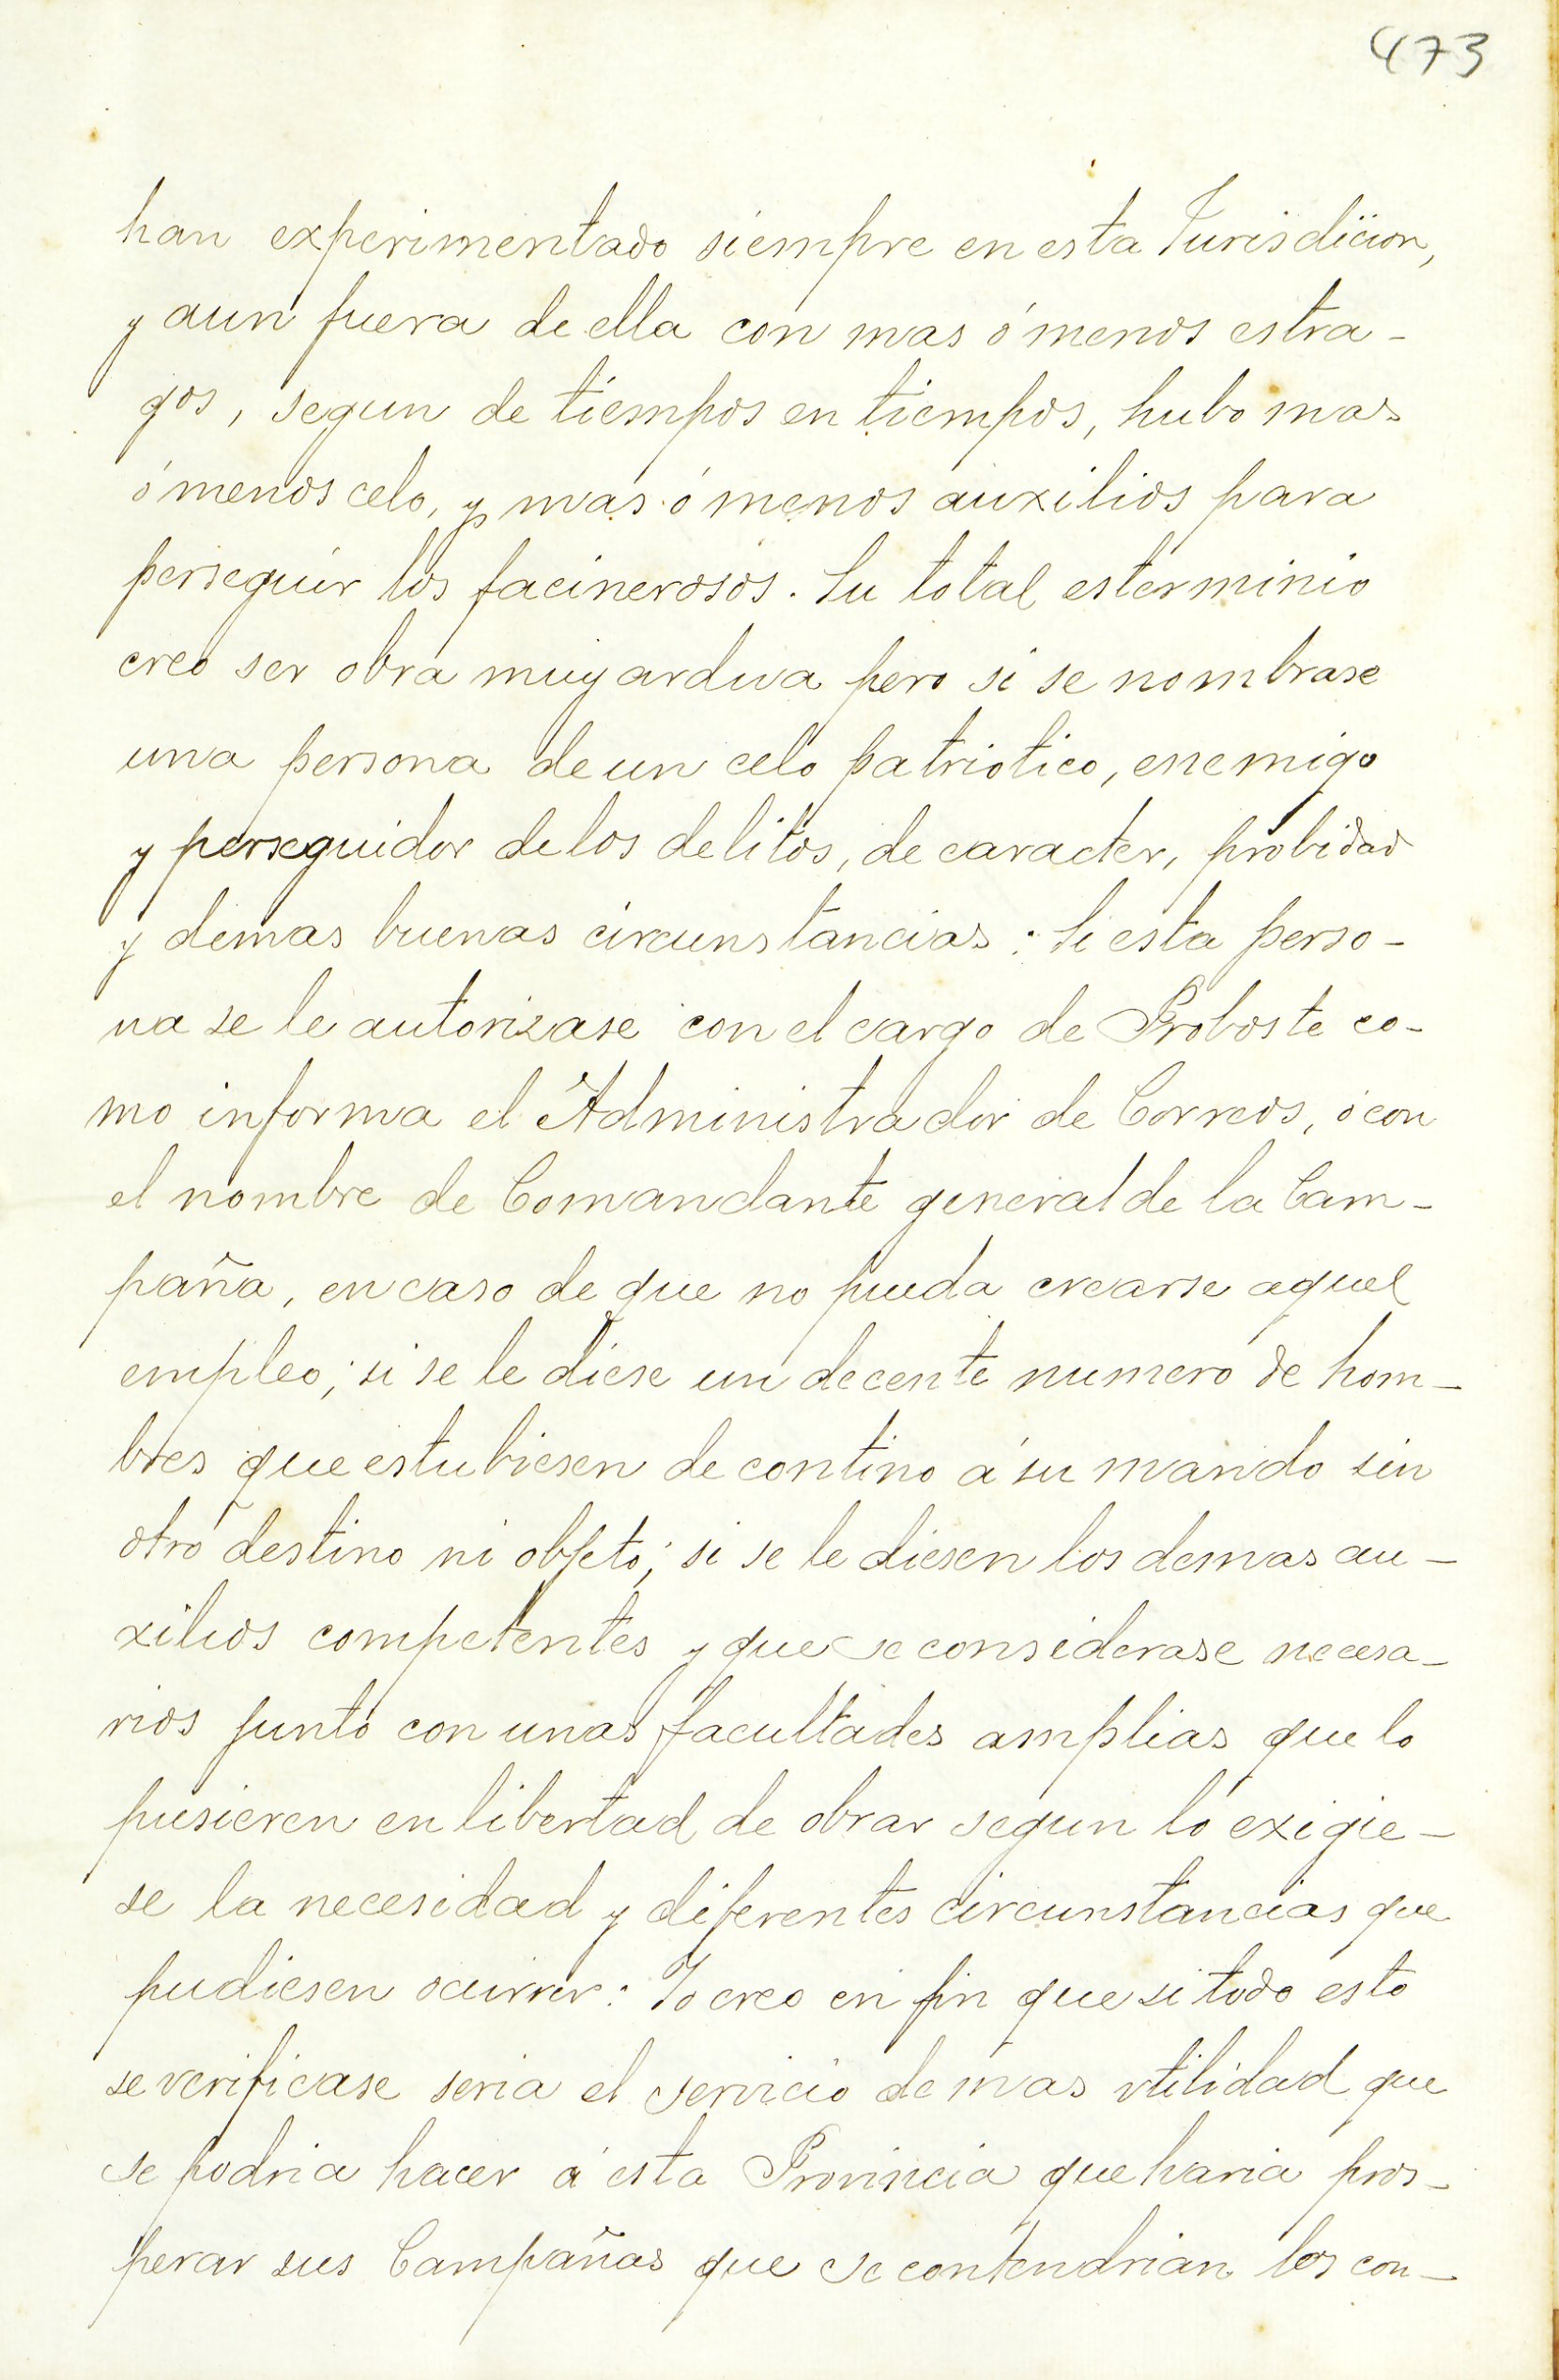 473
han experimentado siempre en esta Jurisdicion,
y aun fuera de ella con mas ó menos estra-
gos, segun de tiempos en tiempos, hubo mas
ó menos celo, y mas ó menos auxilios para
perseguir los facinerosos. Su total esterminio
creo ser obra muy ardua pero si se nombrase
una persona de un celo patriotico, enemigo
y perseguidor de los delitos, de caracter, probidad
y demas buenas circunstancias: Si esta perso-
na se le autorizase con el cargo de Proboste co-
mo informa el Administrador de Correos, ó con
el nombre de Comandante general de la Cam-
paña, en caso de que no pueda crearse aquel
empleo; si se le diese un decente numero de hom-
bres que estubiesen de contino á su mando sin
otro destino ni objeto; si se le diesen los demas au-
xilios competentes y que se considerase necesa-
rios junto con unas facultades amplias que lo
pusieren en libertad de obrar segun lo exigie-
se la necesidad y diferentes circunstancias que
pudiesen ocurrir: Yo creo en fin que si todo esto
se verificase seria el servicio de mas utilidad que
se podria hacer á esta Provincia que haria pros-
perar sus Campañas que se contendrian los con-